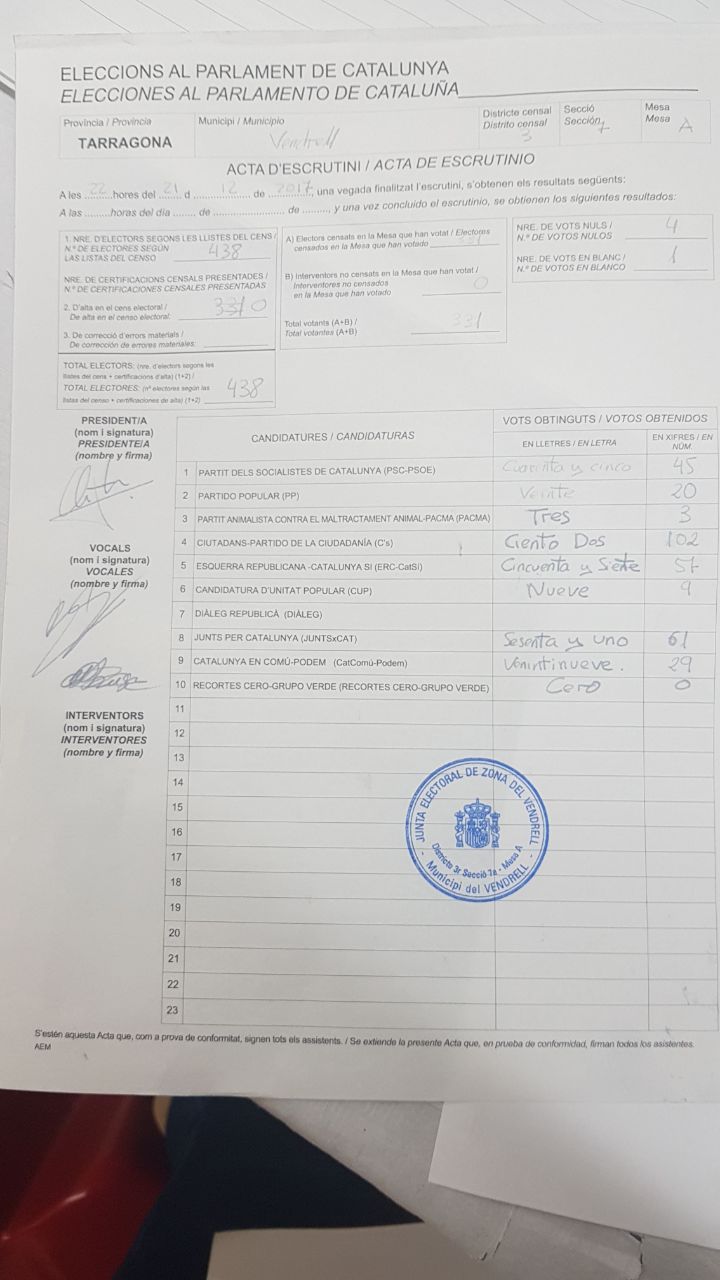 ELECCIONS AL PARLAMENT DE CATALUNYA
ELECCIONES AL PARLAMENTO DE CATALUÑA
Província / Provincia
TARRAGONA
Municipi / Municipio
Vendrell
Districte censal
Distrito censal
3
Secció
Sección
7
Mesa
Mesa A
ACTA D'ESCRUTINI / ACTA DE ESCRUTINIO
A les 22 hores del 21 d 12 de 2017, una vegada finalitzat l'escrutini, s'obtenen els resultats següents:
A las ........horas del día ....... de ...................... de ........, y una vez concluido el escrutinio, se obtienen los siguientes resultados:
1. NRE. D'ELECTORS SEGONS LES LLISTES DEL CENS /
N.º DE ELECTORES SEGÚN
LAS LISTAS DEL CENSO 438
NRE. DE CERTIFICACIONS CENSALS PRESENTADES /
N.º DE CERTIFICACIONES CENSALES PRESENTADAS
2. D'alta en el cens electoral /
De alta en el censo electoral: 0
3. De correcció d'errors materials /
De corrección de errores materiales:
TOTAL ELECTORS: (nre. d'electors segons les
llistes del cens + certificacions d'alta) (1+2) /
TOTAL ELECTORES: (nº electores según las
listas del censo + certificaciones de alta) (1+2) 438
A) Electors censats en la Mesa que han votat / Electores
censados en la Mesa que han votado 331
B) Interventors no censats en la Mesa que han votat /
Interventores no censados
en la Mesa que han votado 0
Total votants (A+B) /
Total votantes (A+B) 331
NRE. DE VOTS NULS /
N.º DE VOTOS NULOS 4
NRE. DE VOTS EN BLANC /
N.º DE VOTOS EN BLANCO 1
PRESIDENT/A
(nom i signatura)
PRESIDENTE/A
(nombre y firma)
VOCALS
(nom i signatura)
VOCALES
(nombre y firma)
INTERVENTORS
(nom i signatura)
INTERVENTORES
(nombre y firma)
CANDIDATURES / CANDIDATURAS
VOTS OBTINGUTS / VOTOS OBTENIDOS
EN LLETRES / EN LETRA
EN XIFRES / EN
NÚM.
1 PARTIT DELS SOCIALISTES DE CATALUNYA (PSC-PSOE) Cuarenta y cinco 45
2 PARTIDO POPULAR (PP) Veinte 20
3 PARTIT ANIMALISTA CONTRA EL MALTRACTAMENT ANIMAL-PACMA (PACMA) Tres 3
4 CIUTADANS-PARTIDO DE LA CIUDADANÍA (C's) Ciento Dos 102
5 ESQUERRA REPUBLICANA -CATALUNYA SÍ (ERC-CatSí) Cincuenta y Siete 57
6 CANDIDATURA D'UNITAT POPULAR (CUP) Nueve 9
7 DIÀLEG REPUBLICÀ (DIÀLEG)
8 JUNTS PER CATALUNYA (JUNTSxCAT) Sesenta y uno 61
9 CATALUNYA EN COMÚ-PODEM (CatComú-Podem) Venintinueve. 29
10 RECORTES CERO-GRUPO VERDE (RECORTES CERO-GRUPO VERDE) Cero 0
11
12
13
14
15
16
17
18
19
20
21
22
23
JUNTA ELECTORAL DE ZONA DEL VENDRELL
Districte 3r Secció 7a - Mesa A
- Municipi del VENDRELL -
S'estén aquesta Acta que, com a prova de conformitat, signen tots els assistents. / Se extiende la presente Acta que, en prueba de conformidad, firman todos los asistentes.
AEM